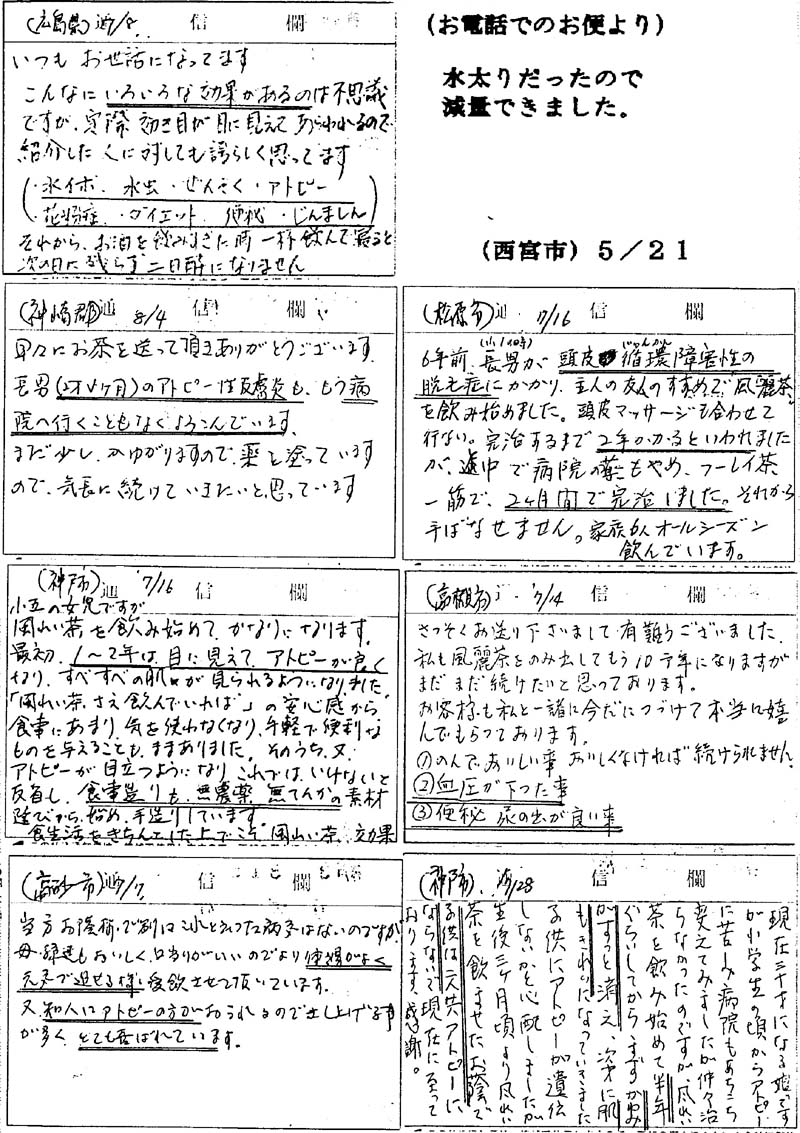 (広島県) 通 7/8 信 欄
いつも お世話になってます
こんなにいろいろな効果があるのは不思議
ですが、実際 効き目が目に見えて あらわれるので
紹介した人に対しても誇らしく思ってます
(・水イボ、水虫・ぜんそく・アトピー
・花粉症、・ダイエット、便秘・じんましん)
それから、お酒を飲みすぎた時 一杯飲んで寝ると
次の日に残らず二日酔になりません
(お電話でのお便より)
水太りだったので
減量できました。
(西宮市) 5/21
(神崎郡) 通 8/4 信 欄
早々にお茶を送って頂きありがとうございます。
長男(2才4ヶ月)のアトピー性皮膚炎も、もう病
院へ行くこともなくよろこんでいます、
まだ少し、かゆがりますので、薬を塗っています
ので、気長に続けていきたいと思っています
(松原市) 通 7/16 信 欄
6年前、長男(小1個時)が 頭皮循環障害性の
脱毛症にかかり、主人の友人のすすめで風麗茶
を飲み始めました。頭皮マッサージも合わせて
行ない。完治するまで2年かかるといわれました
が、途中で病院の薬もやめ、フーレイ茶
一筋で、2ヶ月間で完治しました。それから
手ばなせません。家族4人オールシーズン
飲んでいます。
(神戸市) 通 7/16 信 欄
小五の女児ですが
風れい茶を飲み始めて、かなりになります。
最初、1〜2年は、目に見えて、アトピーが良く
なり、すべすべの肌が見られるようになりました。
「風れい茶さえ飲んでいれば」の安心感から
食事にあまり、気を使わなくなり、手軽で便利な
ものを与えることも、ままありました。そのうち、又、
アトピーが目立つようになり これでは、いけないと
反省し、食事造りも、無農薬、無てんかの素材
選びから、始め、手造りしています。
食生活をきちんとした上でこそ、風れい茶、効果
(高槻市) 通 7/14 信 欄
さっそくお送り下さいまして有難うございました。
私も風麗茶をのみ出してもう10ヶ年になりますが
まだまだ続けたいと思っております。
お客様も私と一緒に今だにつづけて本当に嬉
んでもらっております。
①のんで、おいしい事 おいしくなければ続けられません、
②血圧が下った事
③便秘 尿の出が良い事
(高砂市) 通 7/7 信 欄
当方お陰様で別にこれといった病多はないのですが、
母・娘達もおいしく、口当りがいいのでより体調がよく
元気で過せる様に愛飲させて頂いています。
又、知人にアトピーの方がおられるので差し上げる事
が多く、とても喜ばれています。
(神戸市) 通 /28 信 欄
現在三十才になる娘です
が小学生の頃からアトピー
に苦しみ病院もあちこち
変えてみましたが仲々治
らなかったのですが、風れい
茶を飲み始めて半年
ぐらいしてからまずかゆみ
がすっと消え、次第に肌
もきれいになっていきました
子供にアトピーが遺伝
しないかと心配しましたが
生後三ヶ月頃より風れい
茶を飲ませたお蔭で
子供は二人共アトピーに
ならないで現在に至って
おります、感謝。